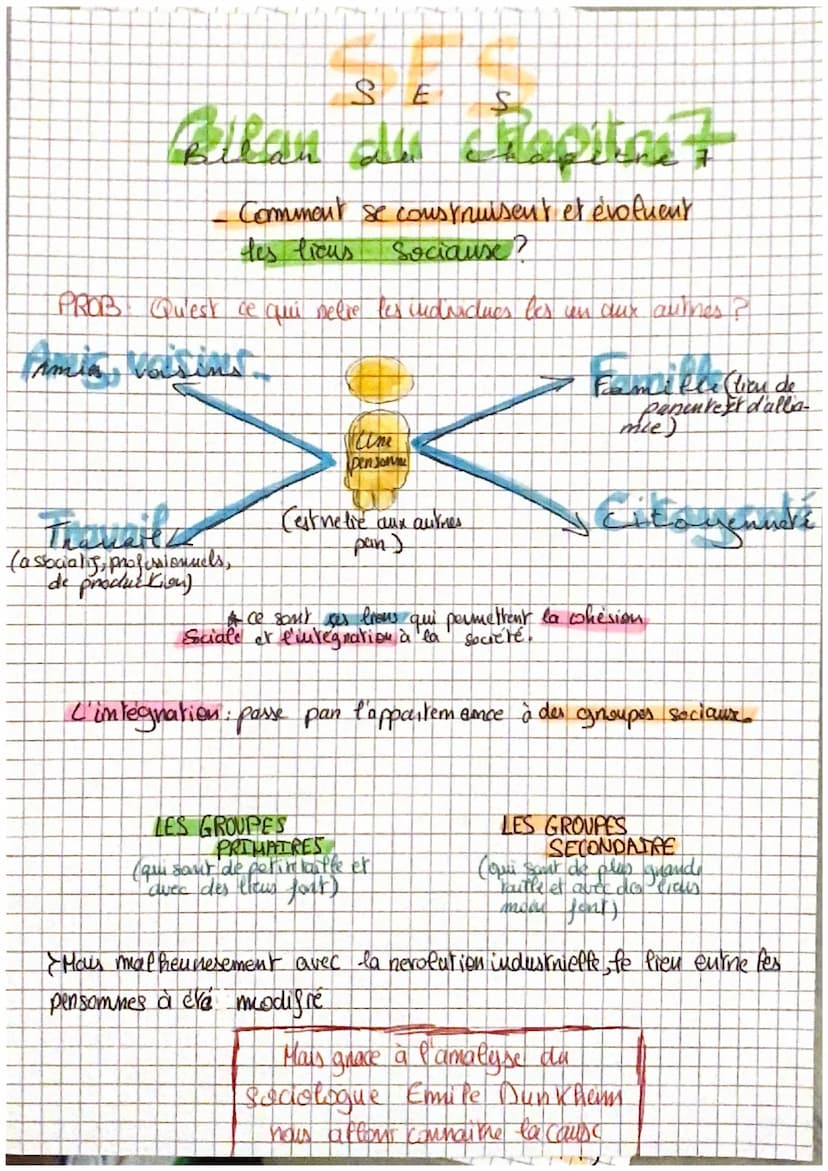 SES
Bilan du chapitre 7
- Comment se construisent et évoluent
les liens Sociause ?
PROB: Qu'est ce qui relie les individues les un aux autres ?
Amis, voisins...
Famille (lieu de
parenté et d'allia-
nce)
Une
personne
(est relié aux autres
par)
Travail
(associatif, professionnels,
de production)
Citoyenneté
* ce sont ses liens qui permettent la cohésion
Sociale et l'intégration à la société.
L'intégration : passe par l'appartemance à des groupes sociaux.
LES GROUPES
PRIMAIRES
(qui sont de petite taille et
avec des liens fort)
LES GROUPES
SECONDAIRE
(qui sont de plus grande
taille et avec des liens
moin fort)
>Mais malheuresement avec la revolution industrielle, le lien entre les
personnes à été modifié
Mais grace à l'analyse du
sociologue Emile Durkheim
nous allons connaitre la cause